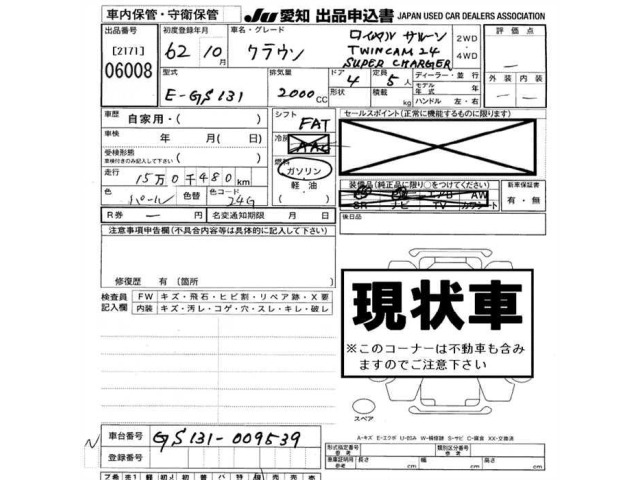 車内保管・守衛保管
JU 愛知 出品申込書 JAPAN USED CAR DEALERS ASSOCIATION
出品番号
[2171]
06008
初度登録年月
62年10月
車名・グレード
クラウン
ロイヤル サルーン
TWINCAM 24
SUPER CHARGER
2WD
・
4WD
評価点
―
外装
内装
型式
E-GS131
排気量
2000cc
ドア
4
形状
定員
5人
積載
kg
ディーラー・並行
モデル年式 年
ハンドル 左・右
車歴
自家用・( )
車検
年 月( 日)
受検形態
車検付きのみ記入して下さい
( )
走行
15万0千480km
色
パール
色替
色コード
24G
R券
―円
名変通知期限 月 日
シフト
FAT
冷房
AAC
燃料
ガソリン
・
軽油
( )
セールスポイント(正常に機能するものに限ります)
装備品(純正品に限り○をつけてください)
エアB AW
SR ナビ TV カワシート
新車保証書
有・無
後日品
注意事項申告欄(不具合内容等は具体的に記入して下さい)
修復歴 有(箇所 )
検査員
記入欄
FW キズ・飛石・ヒビ割・リペア跡・X要
内装 キズ・汚レ・コゲ・穴・スレ・キレ・破レ
現状車
※このコーナーは不動車も含み
ますのでご注意下さい
スペア
A-キズ E-エクボ U-凹A W-補修跡 S-サビ C-腐食 XX-交換済
N
車台番号
GS131-009539
登録番号
型式指定番号
類別区分番号
車庫証明
長さ cm
幅 cm
高さ cm